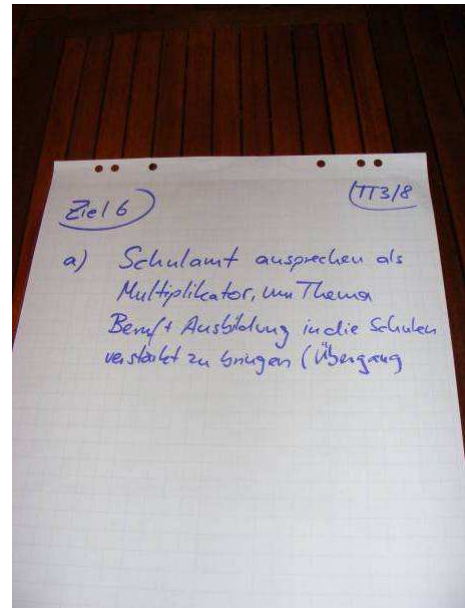 Ziel 6
TT3/8
a) Schulamt ansprechen als
Multiplikator, um Thema
Beruf + Ausbildung in die Schulen
verstärkt zu bringen (Übergang